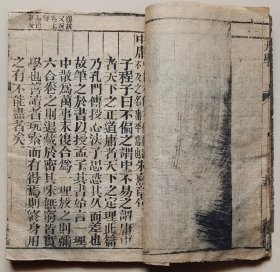 中庸
子程子曰不偏之謂中不易之謂庸中
者天下之正道庸者天下之定理此篇
乃孔門傳授心法子思恐其久而差也
故筆之於書以授孟子其書始言一理
中散為萬事末復合為一理放之則彌
六合卷之則退藏於密其味無窮皆實
學也善讀者玩索而有得焉則終身用
之有不能盡者矣